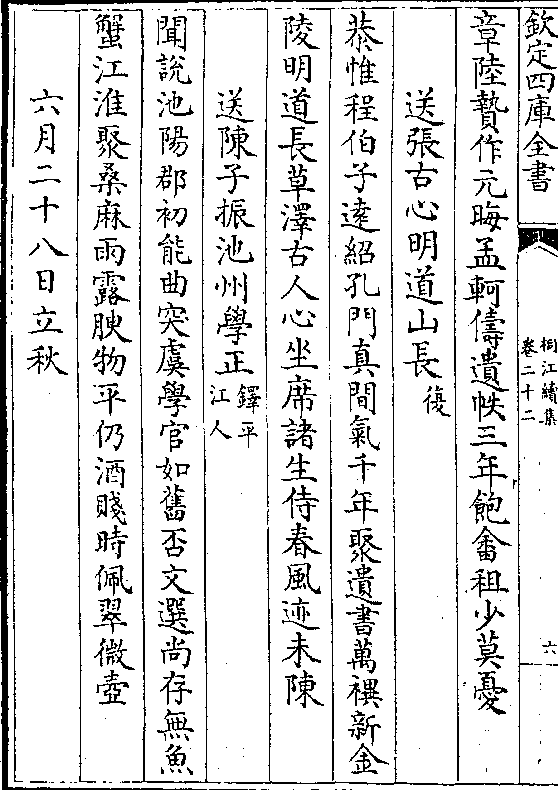 欽定四庫全書
桐江續集
卷二十二
六
章陸贄作元晦孟軻儔遺帙三年飽畬租少莫憂
送張古心明道山長復
恭惟程伯子逺紹孔門真間氣千年聚遺書萬襈新金
陵明道長草澤古人心坐席諸生侍春風迹未陳
送陳子振池州學正鐸平江人
聞說池陽郡初能曲突虞學官如舊否文選尚存無魚
蟹江淮聚桑麻雨露腴物平仍酒賤時佩翠微壺
六月二十八日立秋